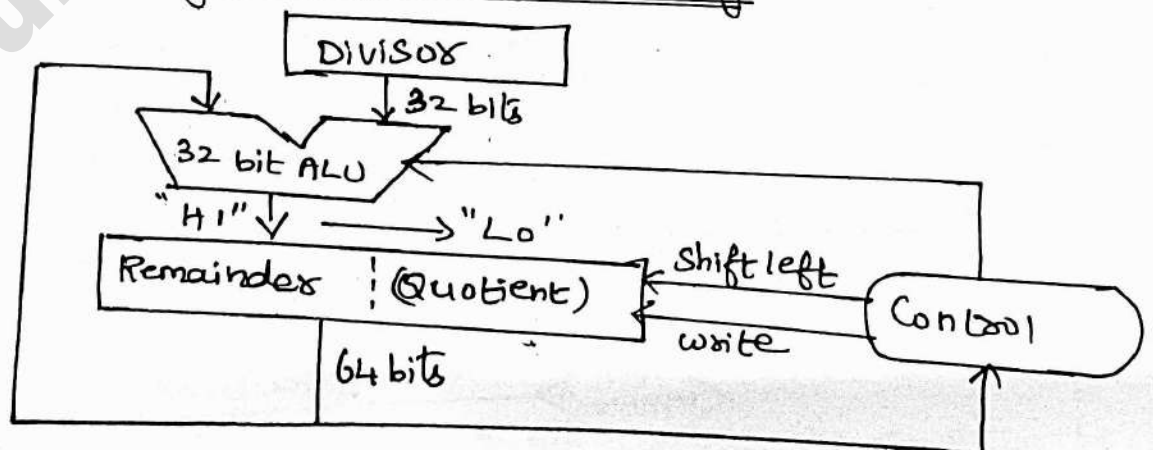 Divisor
32 bits
32 bit ALU
"HI" "Lo"
Remainder (Quotient)
Shift left
write
Control
64 bits